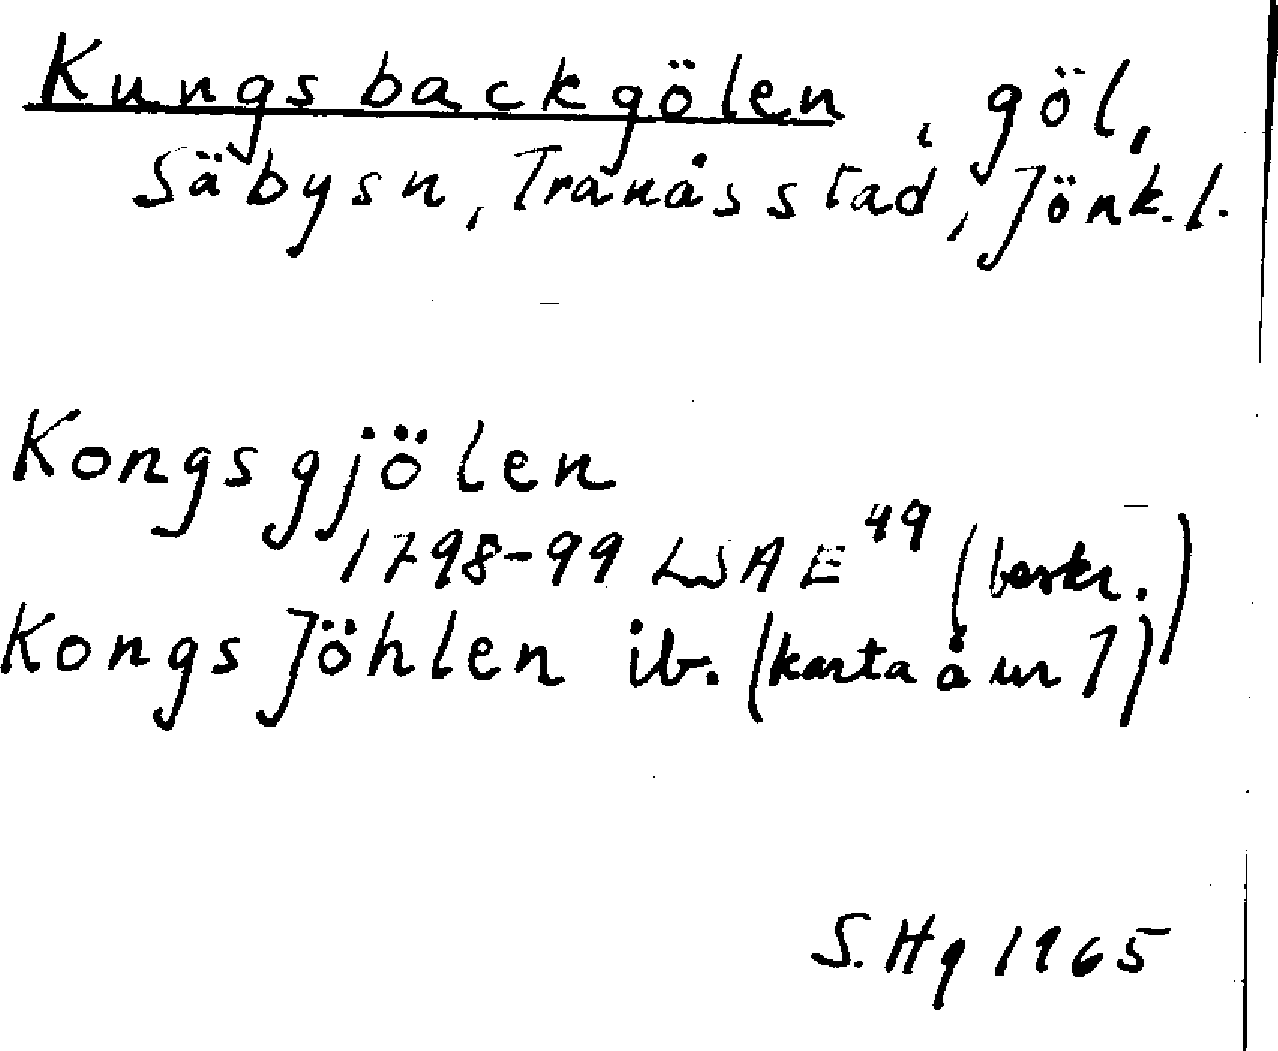 Kungsbackgölen, göl,
Säby sn, Tranås stad, Jönk. l.
Kongsgjölen
1798-99 LSA E 49 (beskr.)
Kongs Jöhlen ib. (karta å ur 7)
S. Hg 1965